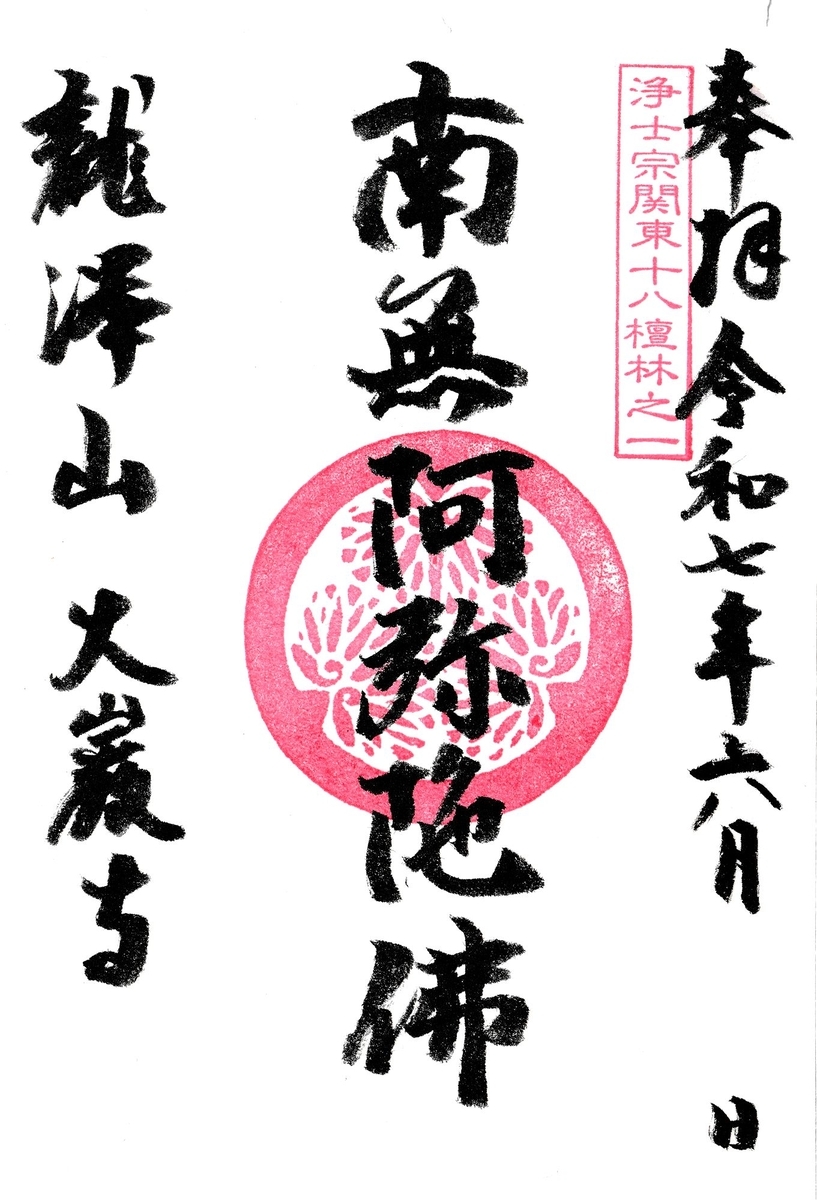 奉拝 令和七年六月 日
浄土宗関東十八檀林之一
南無阿弥陀佛
龍澤山 大巖寺